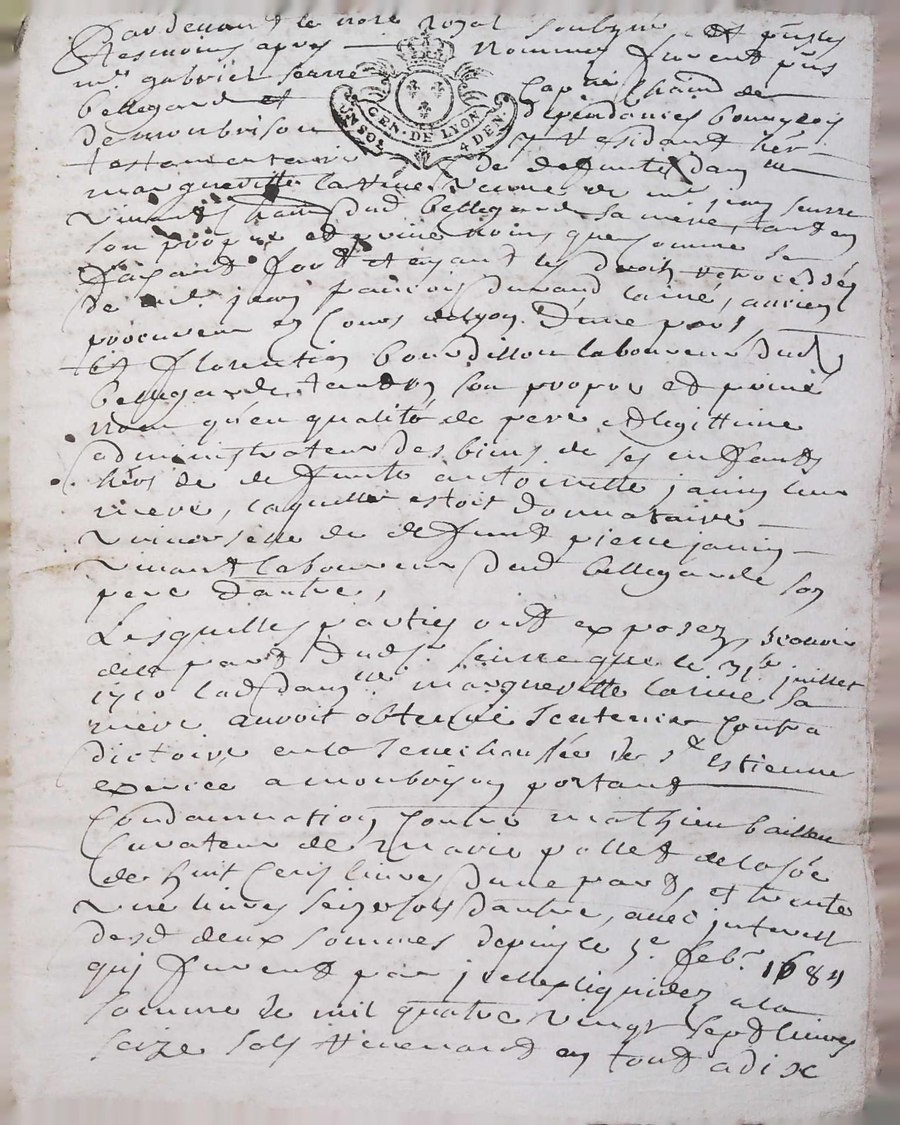 Pardevant le nore royal soubzné et puis les
tesmoins apres nommez furent pns
mre gabriel serre Cap ne Chain de
bellegarde et dependances bourgeois
de monbrison y residant her
testamentaire de deffunte dam lle
margueritte larivé veuve de mre jean serre
vivant Chain dud bellegarde sa mere, tant en
son propre et privé nom, que comme se
faisant fort et ayant les droits retrocedés
de mre jean francois durand lainé, ancien
procureur ez Cours de lyon. D'une part,
Et florentin bourdillon laboureur dud
bellegarde tant en son propre et privé
nom qu'en qualité de pere et legittime
administrateur des biens de ses enfants
hers de deffunte anthoinette janin leur
mere, laquelle estoit donnataire
universelle de deffunt pierre janin
vivant laboureur dud bellegarde son
pere d'autre,
Lesquelles parties ont exposez, scavoir
de la part dud sr serre que le 31e juillet
1710 lad dam lle margueritte larivé sa
mere auroit obtenue sentence Contra
dictoire en la senechaussée de st Estienne
exercée a monbrison portant
Condamnation Contre mathieu bailleu
Curateur de marie pollet
de huit Cens livres d'une part, et trente
une livres seize sols d'autre, avec interest
desd deux sommes depuis le 5e febr 1684
qui furent par icelle liquidez a la
somme de mil quatre vingt sept livres
seize sols revenant en tout a dix
UN SOL GEN. DE LYON 4 DEN.